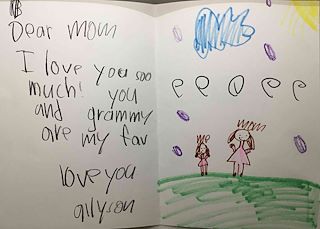 Dear mom
I love you soo
much! you
and grammy
are my fav
love you
allyson
me mom